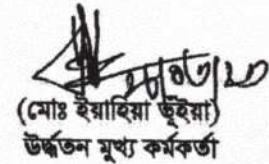 (মোঃ ইয়াহিয়া ভূঁইয়া)
উর্দ্ধতন মুখ্য কর্মকর্তা